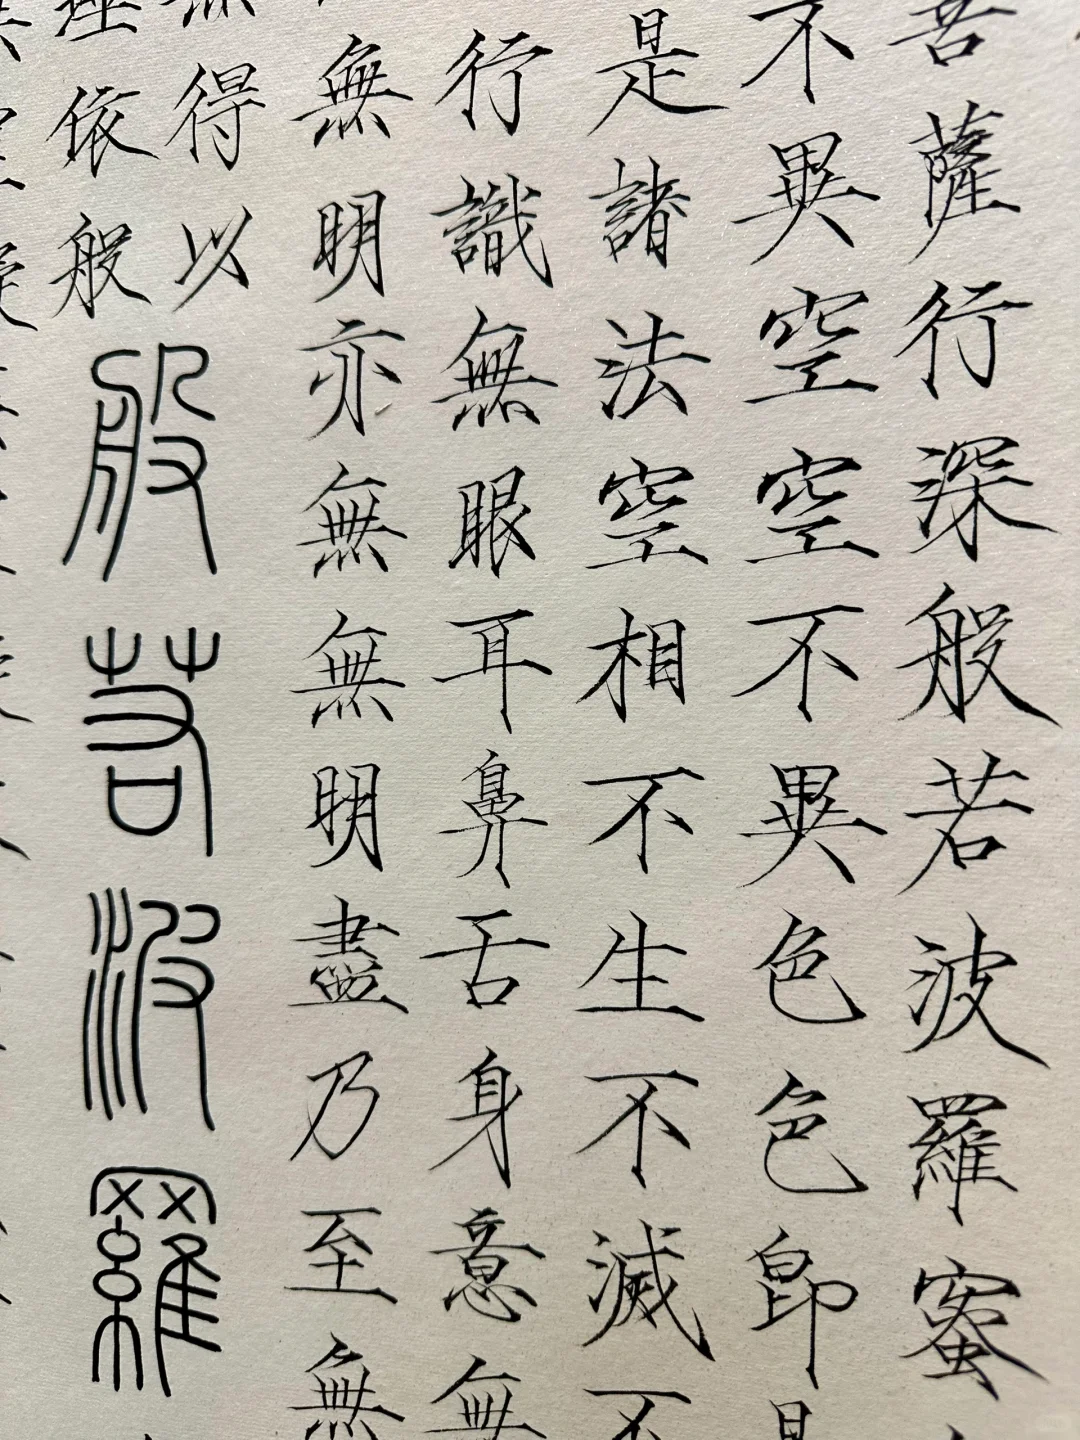 菩薩行深般若波羅蜜
不異空空不異色色即是
是諸法空相不生不滅不
行識無眼耳鼻舌身意無
無明亦無無明盡乃至無
得以
依般
般若波羅